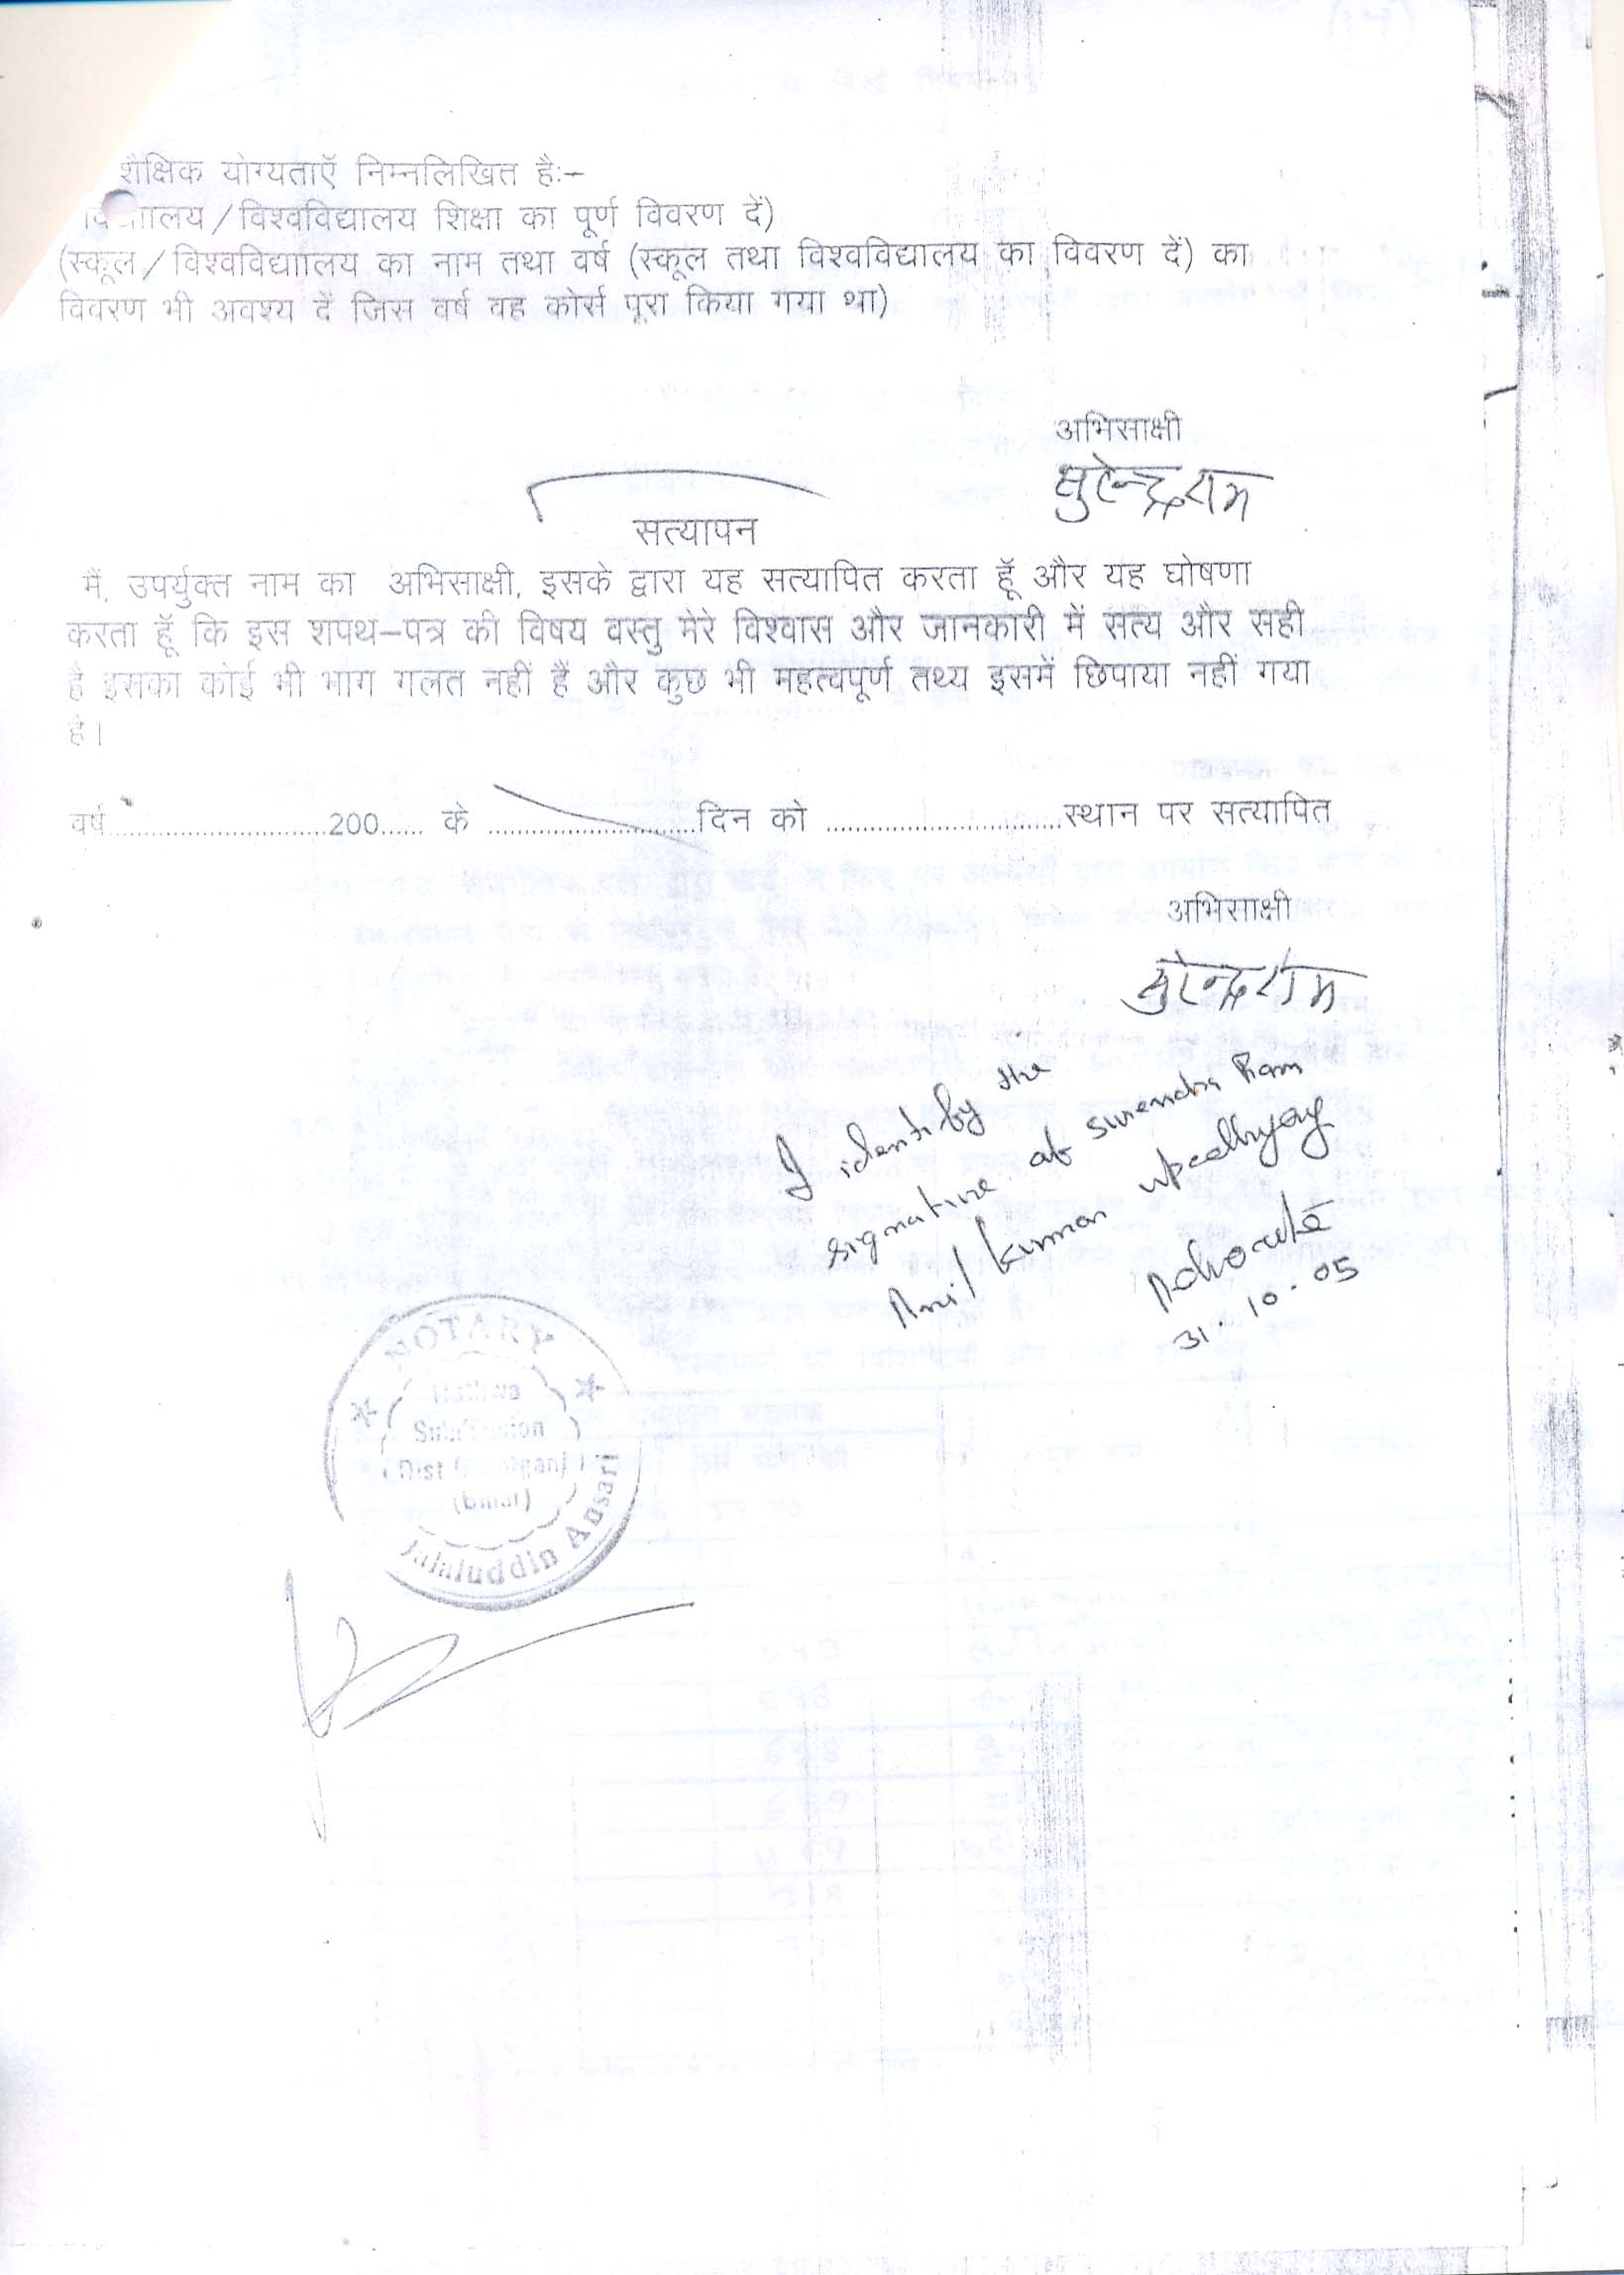 शैक्षिक योग्यताऍ निम्नलिखित है:–
(स्कूल/विश्वविद्याालय का नाम तथा वर्ष (स्कूल तथा विश्वविद्यालय का विवरण दें) का
/विश्वविद्यालय शिक्षा का पूर्ण विवरण दें)
विवरण भी अवश्य दें जिस वर्ष वह कोर्स पूरा किया गया था)
अभिसाक्षी
सुरेन्द्र राम
सत्यापन
मैं, उपर्युक्त नाम का अभिसाक्षी, इसके द्वारा यह सत्यापित करता हूॅ और यह घोषणा
करता हूॅ कि इस शपथ–पत्र की विषय वस्तु मेरे विश्वास और जानकारी में सत्य और सही
है इसका कोई भी भाग गलत नहीं हैं और कुछ भी महत्वपूर्ण तथ्य इसमें छिपाया नहीं गया
है।
वर्ष..............................200...... के ............................दिन को ................................स्थान पर सत्यापित
अभिसाक्षी
सुरेन्द्र राम
I identify the
signature of Surendra Ram
Anil Kumar Upadhyay
Advocate
31.10.05
NOTARY
Hathwa
Subdivision
Dist
(Bihar)
Jalaluddin Ansari